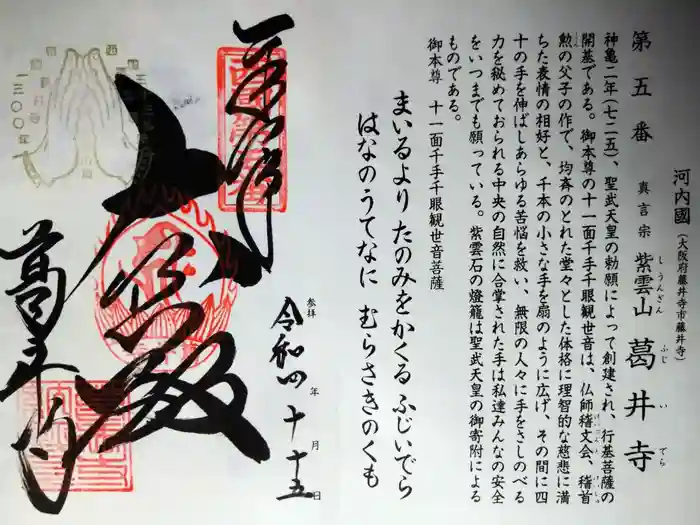 河内國(大阪府藤井寺市藤井寺)
第五番 真言宗 紫雲山 葛井寺
しうんざん ふじいでら
神亀二年(七二五)、聖武天皇の勅願によって創建され、行基菩薩の
開基である。御本尊の十一面千手千眼観世音は、仏師稽文会、稽首
勲の父子の作で、均斉のとれた堂々とした体格に理智的な慈悲に満
ちた表情の相好と、千本の小さな手を扇のように広げ、その間に四
十の手を伸ばしあらゆる苦悩を救い、無限の人々に手をさしのべる
力を秘めておられる中央の自然に合掌された手は私達みんなの安全
をいつまでも願っている。紫雲石の燈籠は聖武天皇の御寄附による
ものである。
御本尊 十一面千手千眼観世音菩薩
まいるより たのみをかくる ふじいでら
はなのうてなに むらさきのくも
参拝 年 月 日
令和四 十 十五
西国第五番
大悲殿
葛井寺
一三〇〇年